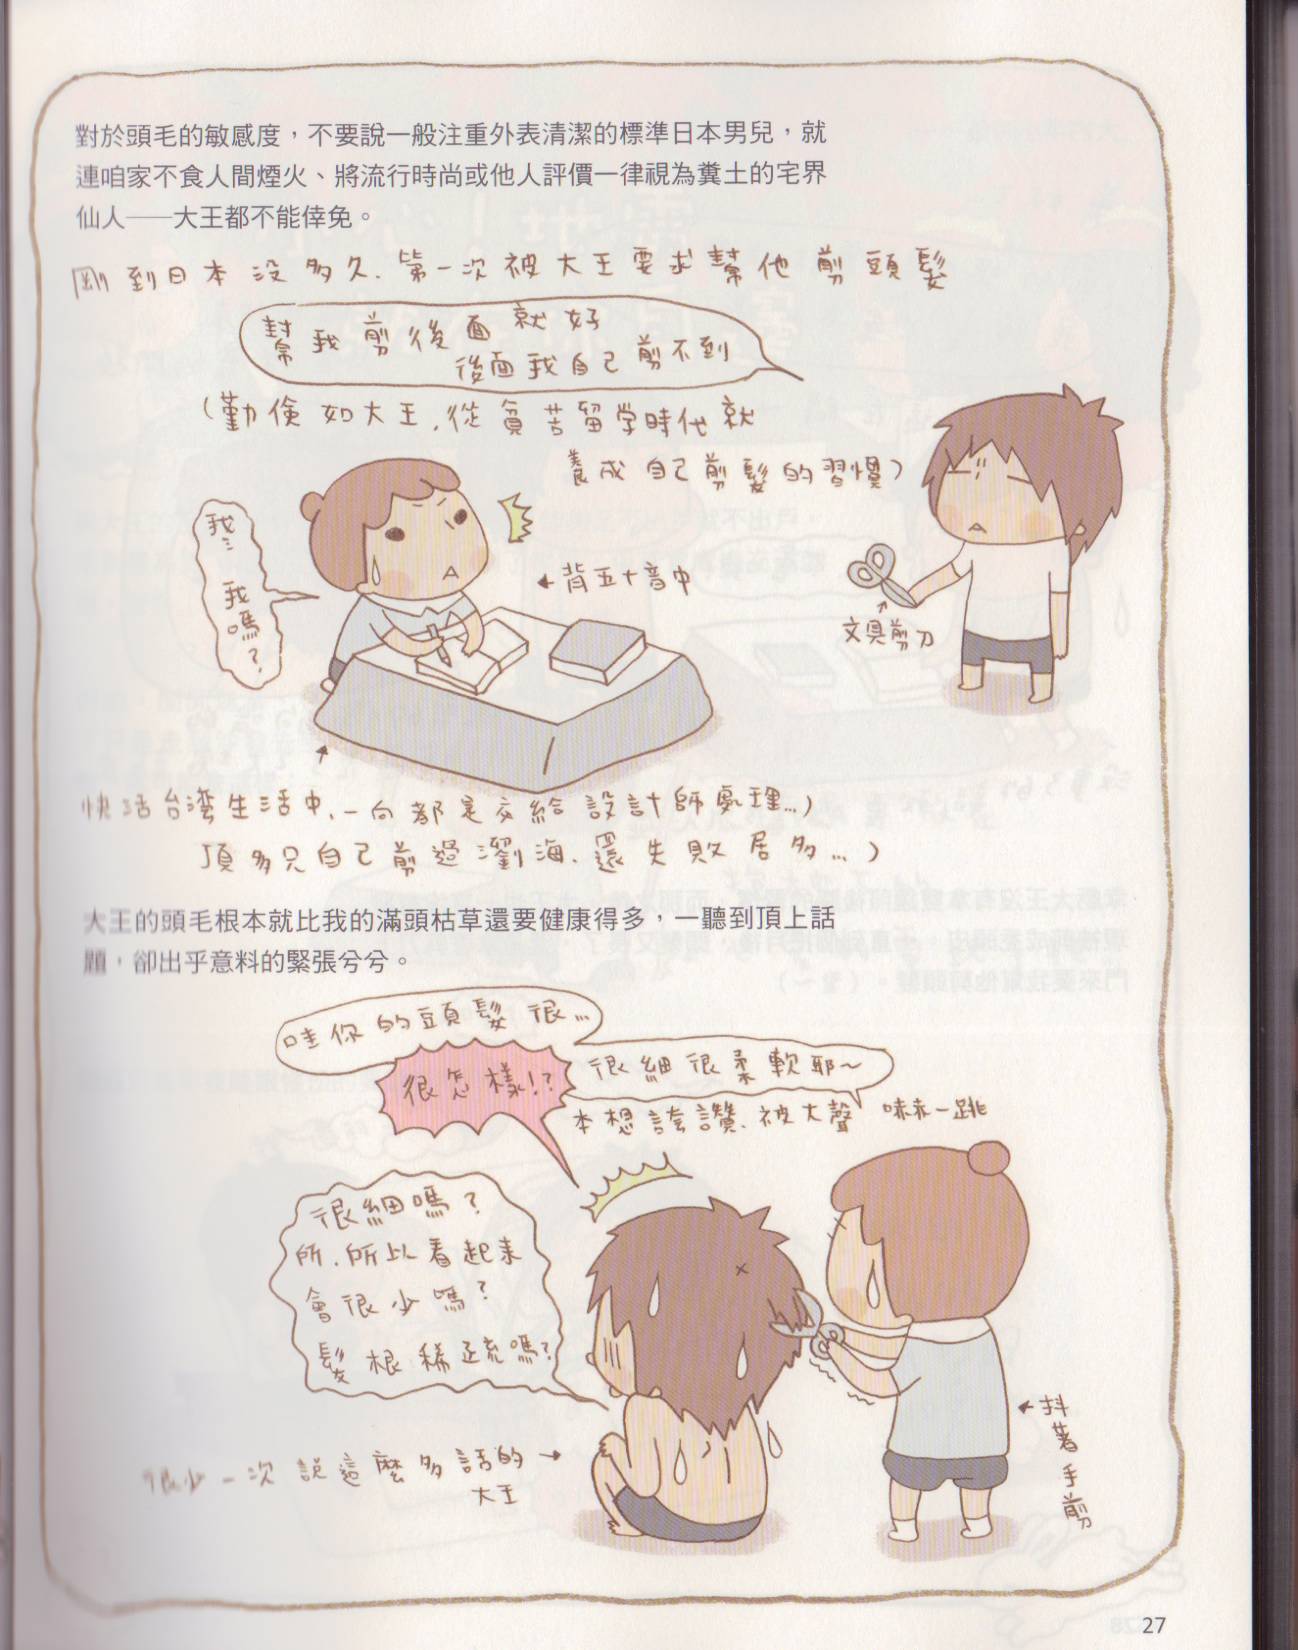 對於頭毛的敏感度，不要說一般注重外表清潔的標準日本男兒，就
連咱家不食人間煙火、將流行時尚或他人評價一律視為糞土的宅界
仙人──大王都不能倖免。
剛到日本沒多久、第一次被大王要求幫他剪頭髮
幫我剪後面就好
後面我自己剪不到
（勤儉如大王，從貧苦留学時代就
養成自己剪髮的習慣）
我… 我嗎？
←背五十音中
↑
文具剪刀
快活台灣生活中、一向都是交給設計師處理…）
頂多只自己剪過瀏海、還失敗居多…）
大王的頭毛根本就比我的滿頭枯草還要健康得多，一聽到頂上話
題，卻出乎意料的緊張兮兮。
哇你的頭髮很…
很怎樣!?
很細很柔軟耶～
本想誇讚、被大聲嚇一跳
很細嗎？
所、所以看起來
會很少嗎？
髮根稀疏嗎？
很少一次說這麼多話的→
大王
←抖著手剪
27